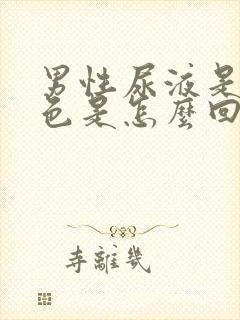 男性尿液是
色是怎麼回
寺離幾